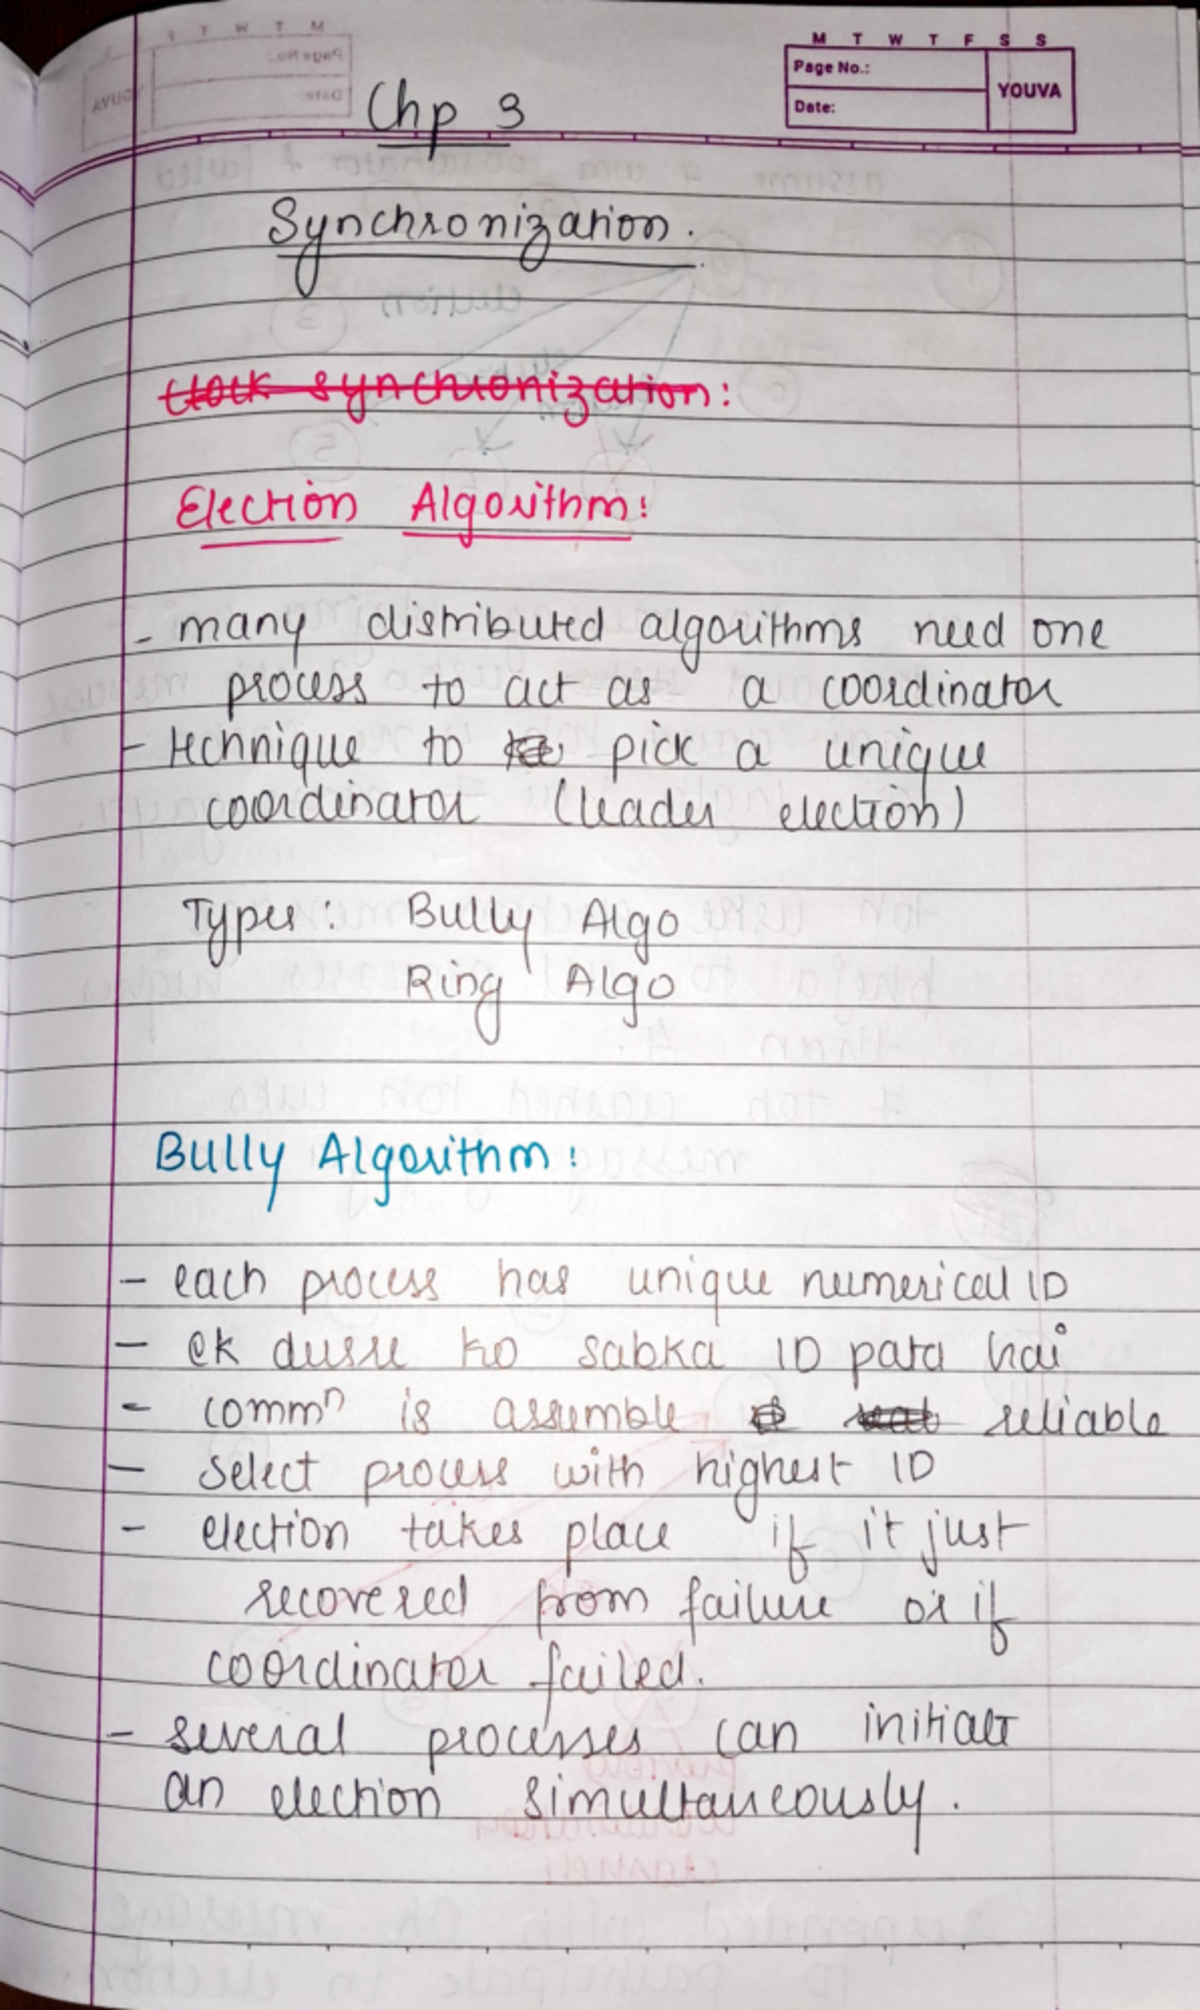 M T W T F S S
Page No.:
YOUVA
Date:
Chp 3
Synchronization.
Clock synchronization:
Election Algorithm:
- many distributed algorithms need one
process to act as a coordinator
- technique to pick a unique
coordinator (leader election)
Types: Bully Algo
Ring Algo
Bully Algorithm:
- each process has unique numerical ID
- ek dusre ko sabka ID pata hai
- commⁿ is assumble reliable
- select process with highest ID
- election takes place if it just
recovered from failure or if
coordinator failed.
- several processes can initiate
an election simultaneously.